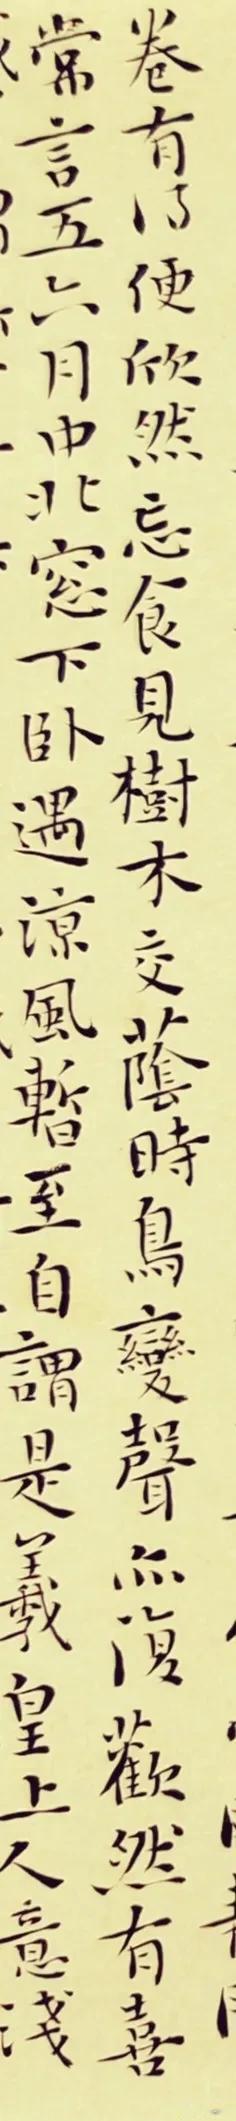 卷有得便欣然忘食見樹木交蔭時鳥變聲亦復歡然有喜
常言五六月中北窓下臥遇涼風暫至自謂是羲皇上人意淺